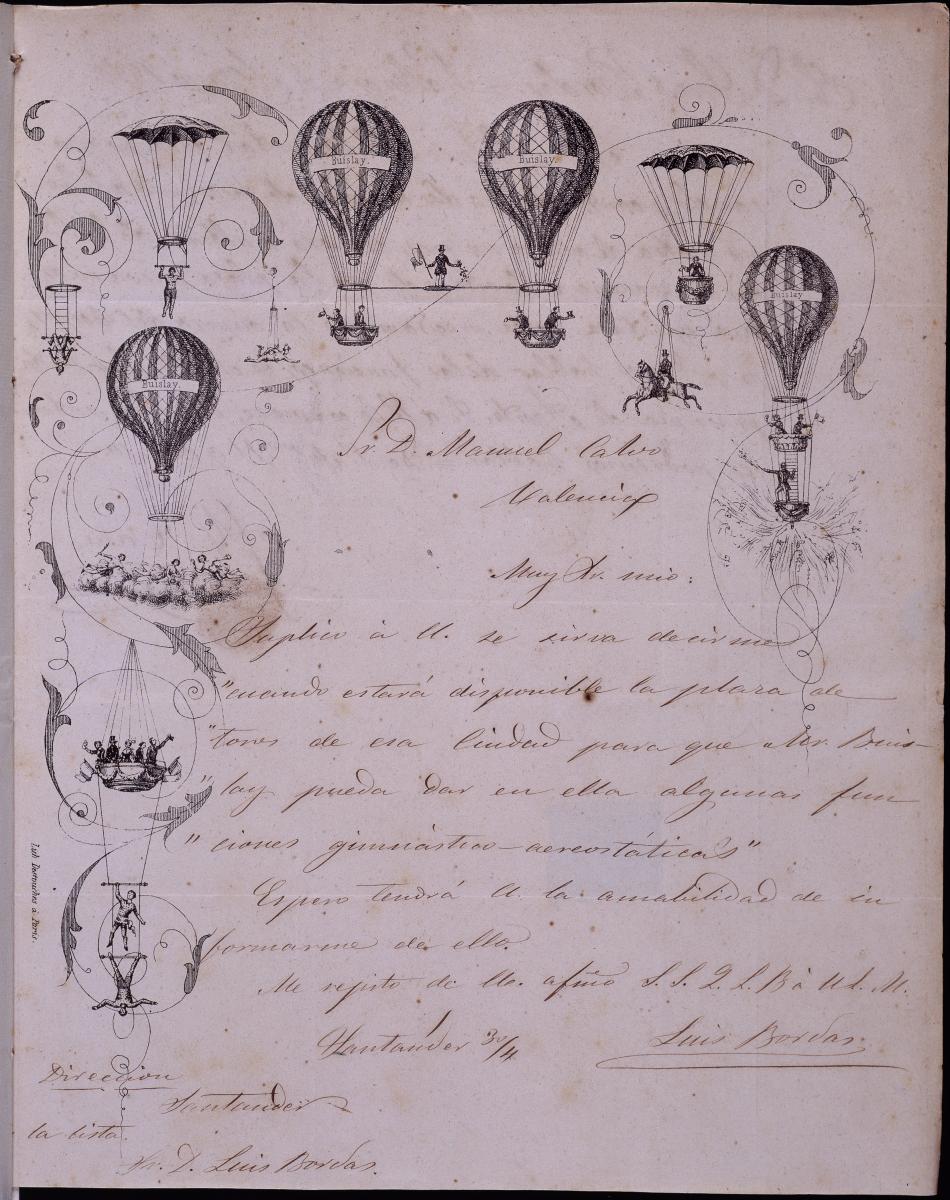 Buislay.
Buislay.
Buislay
Buislay.
Sr. D. Manuel Calvo
Valencia
Muy Sr. mio:
Suplico á U. se sirva decirme
"cuando estará disponible la plaza de
"toros de esa Ciudad para que Mr. Buis-
"lay pueda dar en ella algunas fun
"ciones gimnástico-aereostáticas"
Espero tendrá U. la amabilidad de in
formarme de ello.
Me repito de U. afmo S. S. Q. S. B á U. L. M.
Santander 30/4
Luis Bordas
Direccion
Santander
la lista
Sr. D. Luis Bordas.
Lith Destouches a Paris.